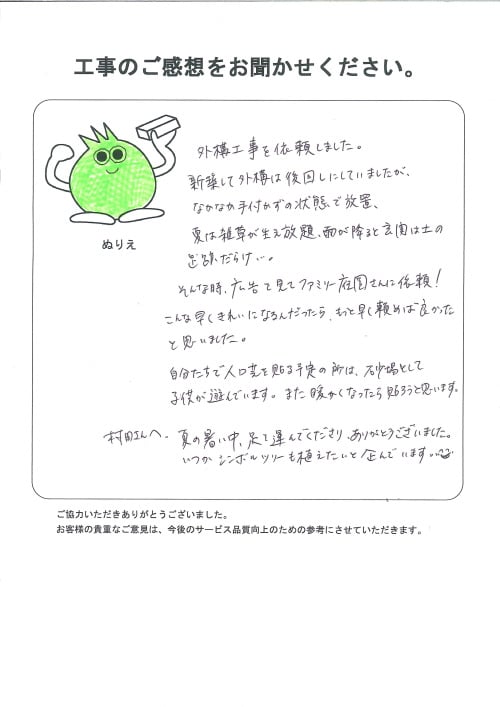 工事のご感想をお聞かせください。
ぬりえ
外構工事を依頼しました。
新築して外構は後回しにしていましたが、
なかなか手付かずの状態で放置、
夏は雑草が生え放題、雨が降ると玄関は土の
足跡だらけ…。
そんな時、広告を見てファミリー庭園さんに依頼！
こんな早くきれいになるんだったら、もっと早く頼めば良かった
と思いました。
自分たちで人口芝を貼る予定の所は、砂場として
子供が遊んでいます。また暖かくなったら貼ろうと思います。
村田さんへ. 夏の暑い中、足を運んでくださり、ありがとうございました。
いつかシンボルツリーも植えたいと企んでいます…
ご協力いただきありがとうございました。
お客様の貴重なご意見は、今後のサービス品質向上のための参考にさせていただきます。